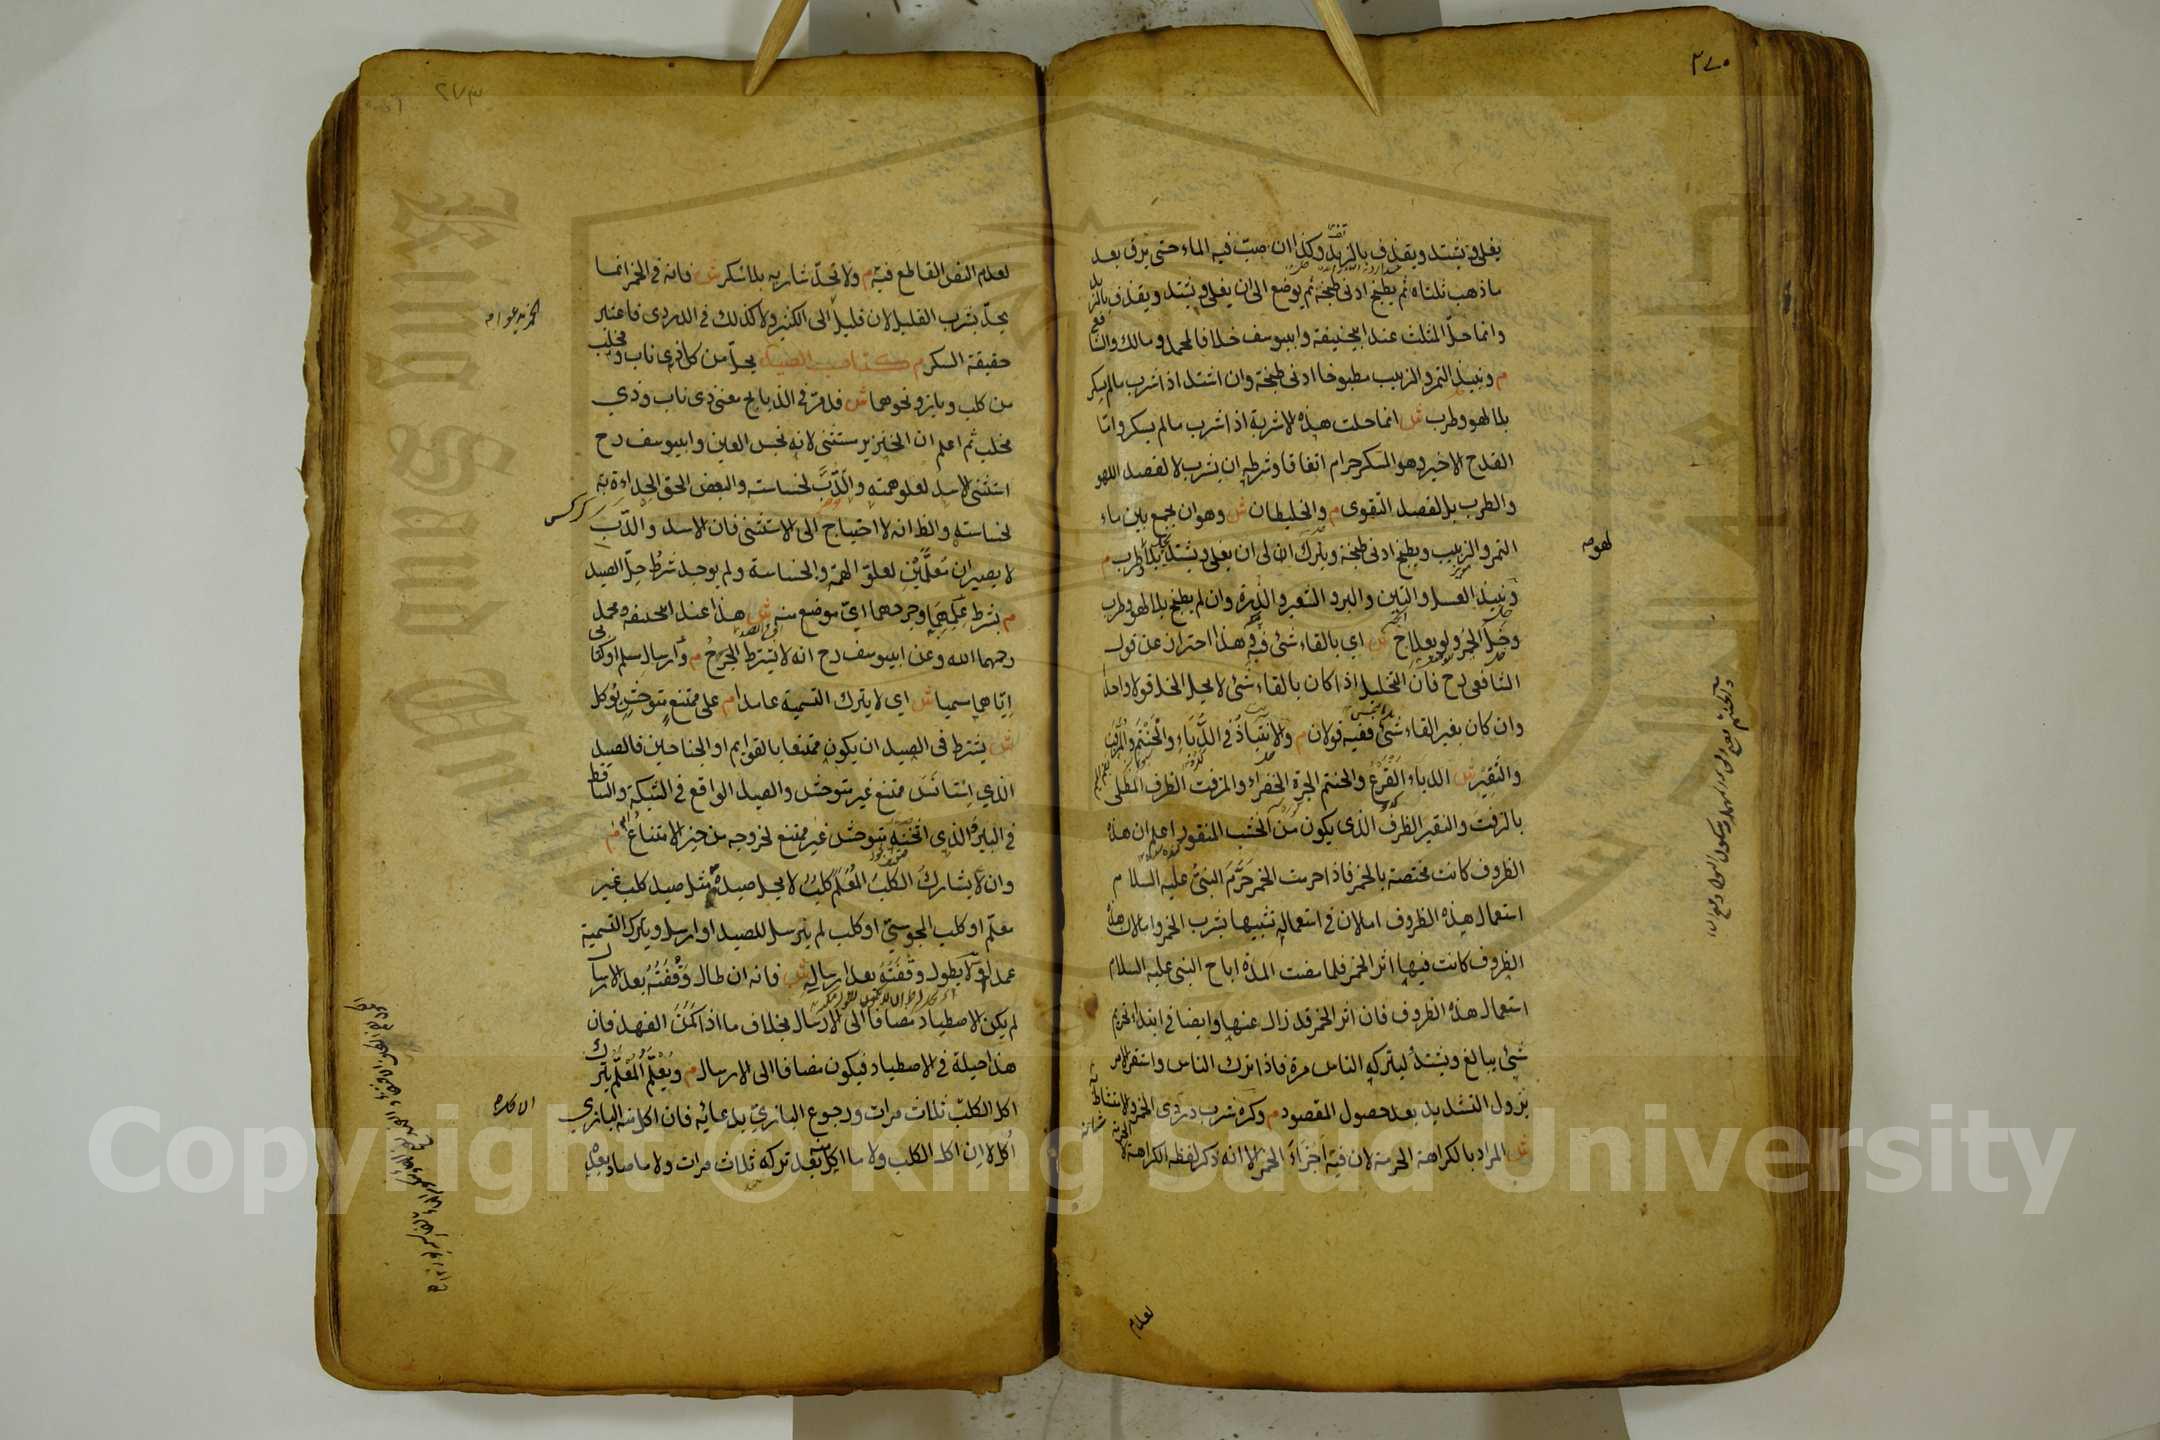 ٢٧٥
يغلي ويشتد ويقذف بالزبد وكذا ان صب فيه الماء حتى يرق بعد
ما ذهب ثلثاه ثم يطبخ ادنى طبخة ثم يوضع الى ان يغلي ويشتد ويقذف بالزبد
وانما حل المثلث عند ابيحنيفة وابييوسف خلافا لمحمد ومالك والشافعي
م ونبيذ التمر والزبيب مطبوخا ادنى طبخة وان اشتد اذا شرب ما لم يسكر
بلا لهو وطرب ش انما حلت هذه الاشربة اذا شرب ما لم يسكر واما
القدح الاخير وهو المسكر حرام اتفاقا وشرطه ان يشرب لا لقصد اللهو
والطرب بل لقصد التقوى م والخليطان ش وهو ان يجمع بين ماء
التمر والزبيب ويطبخ ادنى طبخة ويترك الى ان يغلي ويشتد بلا طرب م
ونبيذ العسل والتين والبر والشعير والذرة وان لم يطبخ بلا لهو وطرب
وخل الخمر ولو بعلاج ش اي بالقاء شئ فيه هذا احتراز عن قول
الشافعي رح فان التخليل اذا كان بالقاء شئ لا يحل الخل قولا واحدا
وان كان بغير القاء شئ ففيه قولان م والانتباذ في الدباء والحنتم والمزفت
والنقير ش الدباء القرع والحنتم الجرة الخضراء والمزفت الظرف المطلى
بالزفت والنقير الظرف الذى يكون من الخشب المنقور اعلم ان هذه
الظروف كانت مختصة بالخمر فاذا حرمت الخمر حرم النبي عليه السلام
استعمال هذه الظروف اما لان في استعماله تشبيها بشرب الخمر واما لان هذه
الظروف كانت فيها اثر الخمر فلما مضت المدة اباح النبي عليه السلام
استعمال هذه الظروف فان اثر الخمر قد زال عنها وايضا في ابتداء تحريم
شئ يبالغ ويشتد ليتركه الناس مرة فاذا ترك الناس واستقر الامر
يزول التشديد بعد حصول المقصود م وكره شرب دردى الخمر والامتشاط به
ش المراد بالكراهة الحرمة لان فيه اجزاء الخمر الا انه ذكر لفظه الكراهة لا
لعدم
٢٧٣
لعدم النص القاطع فيه م ولا يحد شاربه بلا سكر ش فانه في الخمر انما
يحد بشرب القليل لان قليله الى الكثير ولا كذلك في الدردى فاعتبر
حقيقة السكر م كتاب الصيد يحل من كل ذى ناب ومخلب
من كلب وباز ونحوهما ش قد مر في الذبايح معنى ذى ناب وذي
مخلب ثم اعلم ان الخنزير يستثنى لانه نجس العين وابييوسف رح
استثنى الاسد لعلو همته والدب لخساسته والبعض الحق الحداءة به
لخساسته والظ انه لا احتياج الى الاستثنى فان الاسد والدب
لا يصيران معلمين لعلو الهمة والخساسة ولم يوجد شرط حل الصيد
م بشرط علمهما وجرحهما اي موضع منه ش هذا عند ابيحنيفه ومحمد
رحهما الله وعن ابييوسف رح انه لا يشترط الجرح م وارسال مسلم او كتابى
اياهما مسميا ش اي لا يترك التسمية عامدا م على ممتنع متوحش يؤكل
ش يشترط في الصيد ان يكون ممتنعا بالقوايم او الجناحين فالصيد
الذي استانس ممتنع غير متوحش والصيد الواقع في الشبكة والساقط
في البير والذي اثخنه متوحش غير ممتنع لخروجه من حيز الامتناع م
وان لا يشارك الكلب المعلم كلب لا يحل صيده مثل صيد كلب غير
معلم او كلب المجوسي او كلب لم يرسل للصيد او ارسل ويترك التسمية
عمدا ولا يطول وقفته بعد ارساله ش فانه ان طال وقفته بعد الارسال
لم يكن الاصطياد مضافا الى الارسال بخلاف ما اذا كمن الفهد فان
هذا حيلة في الاصطياد فيكون مضافا الى الارسال م ويعلم المعلم بترك
اكل الكلب ثلاث مرات ورجوع البازي بدعائه فان اكل منه البازي
اكل لا ان اكل الكلب ولا ما اكل منه بعد تركه ثلاث مرات ولا ما صاد بعده
Copyright © King Saud University
King Saud University